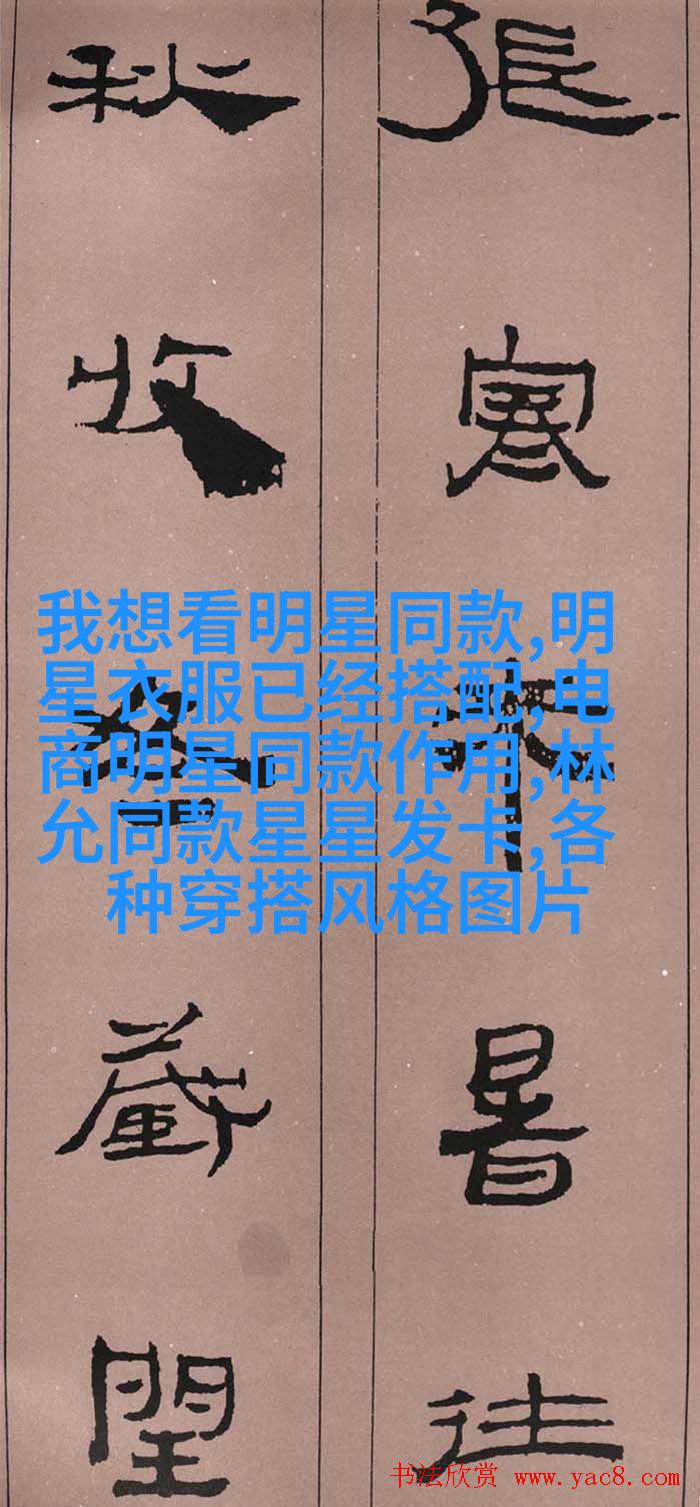 張寒來暑往
秋收冬藏閏
我想看明星同款,明
星衣服已经搭配,电
商明星同款作用,林
允同款星星发卡,各
种穿搭风格图片
书法欣赏 www.yac8.com